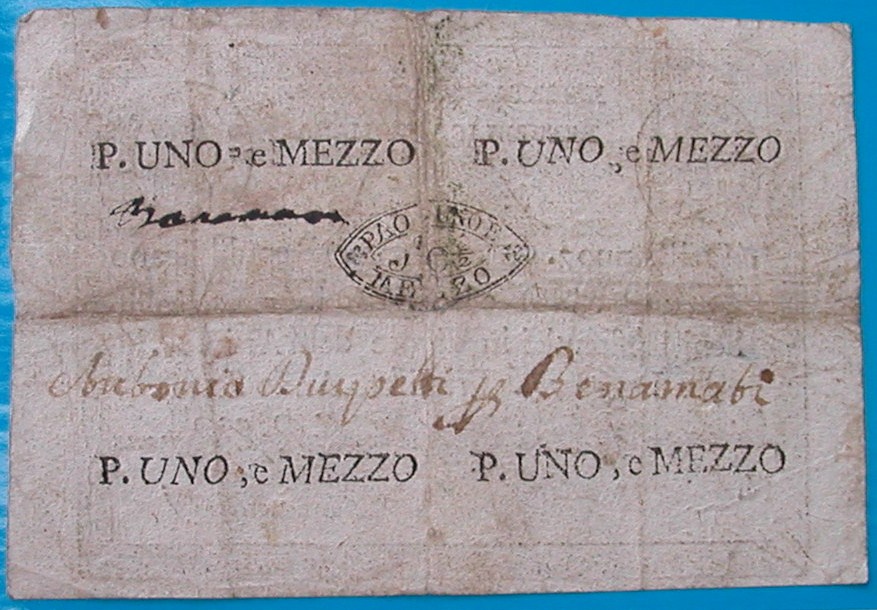 P. UNO, e MEZZO P. UNO, e MEZZO
PAO UNO E
MEZZO
Antonio Benamati
P. UNO, e MEZZO P. UNO, e MEZZO